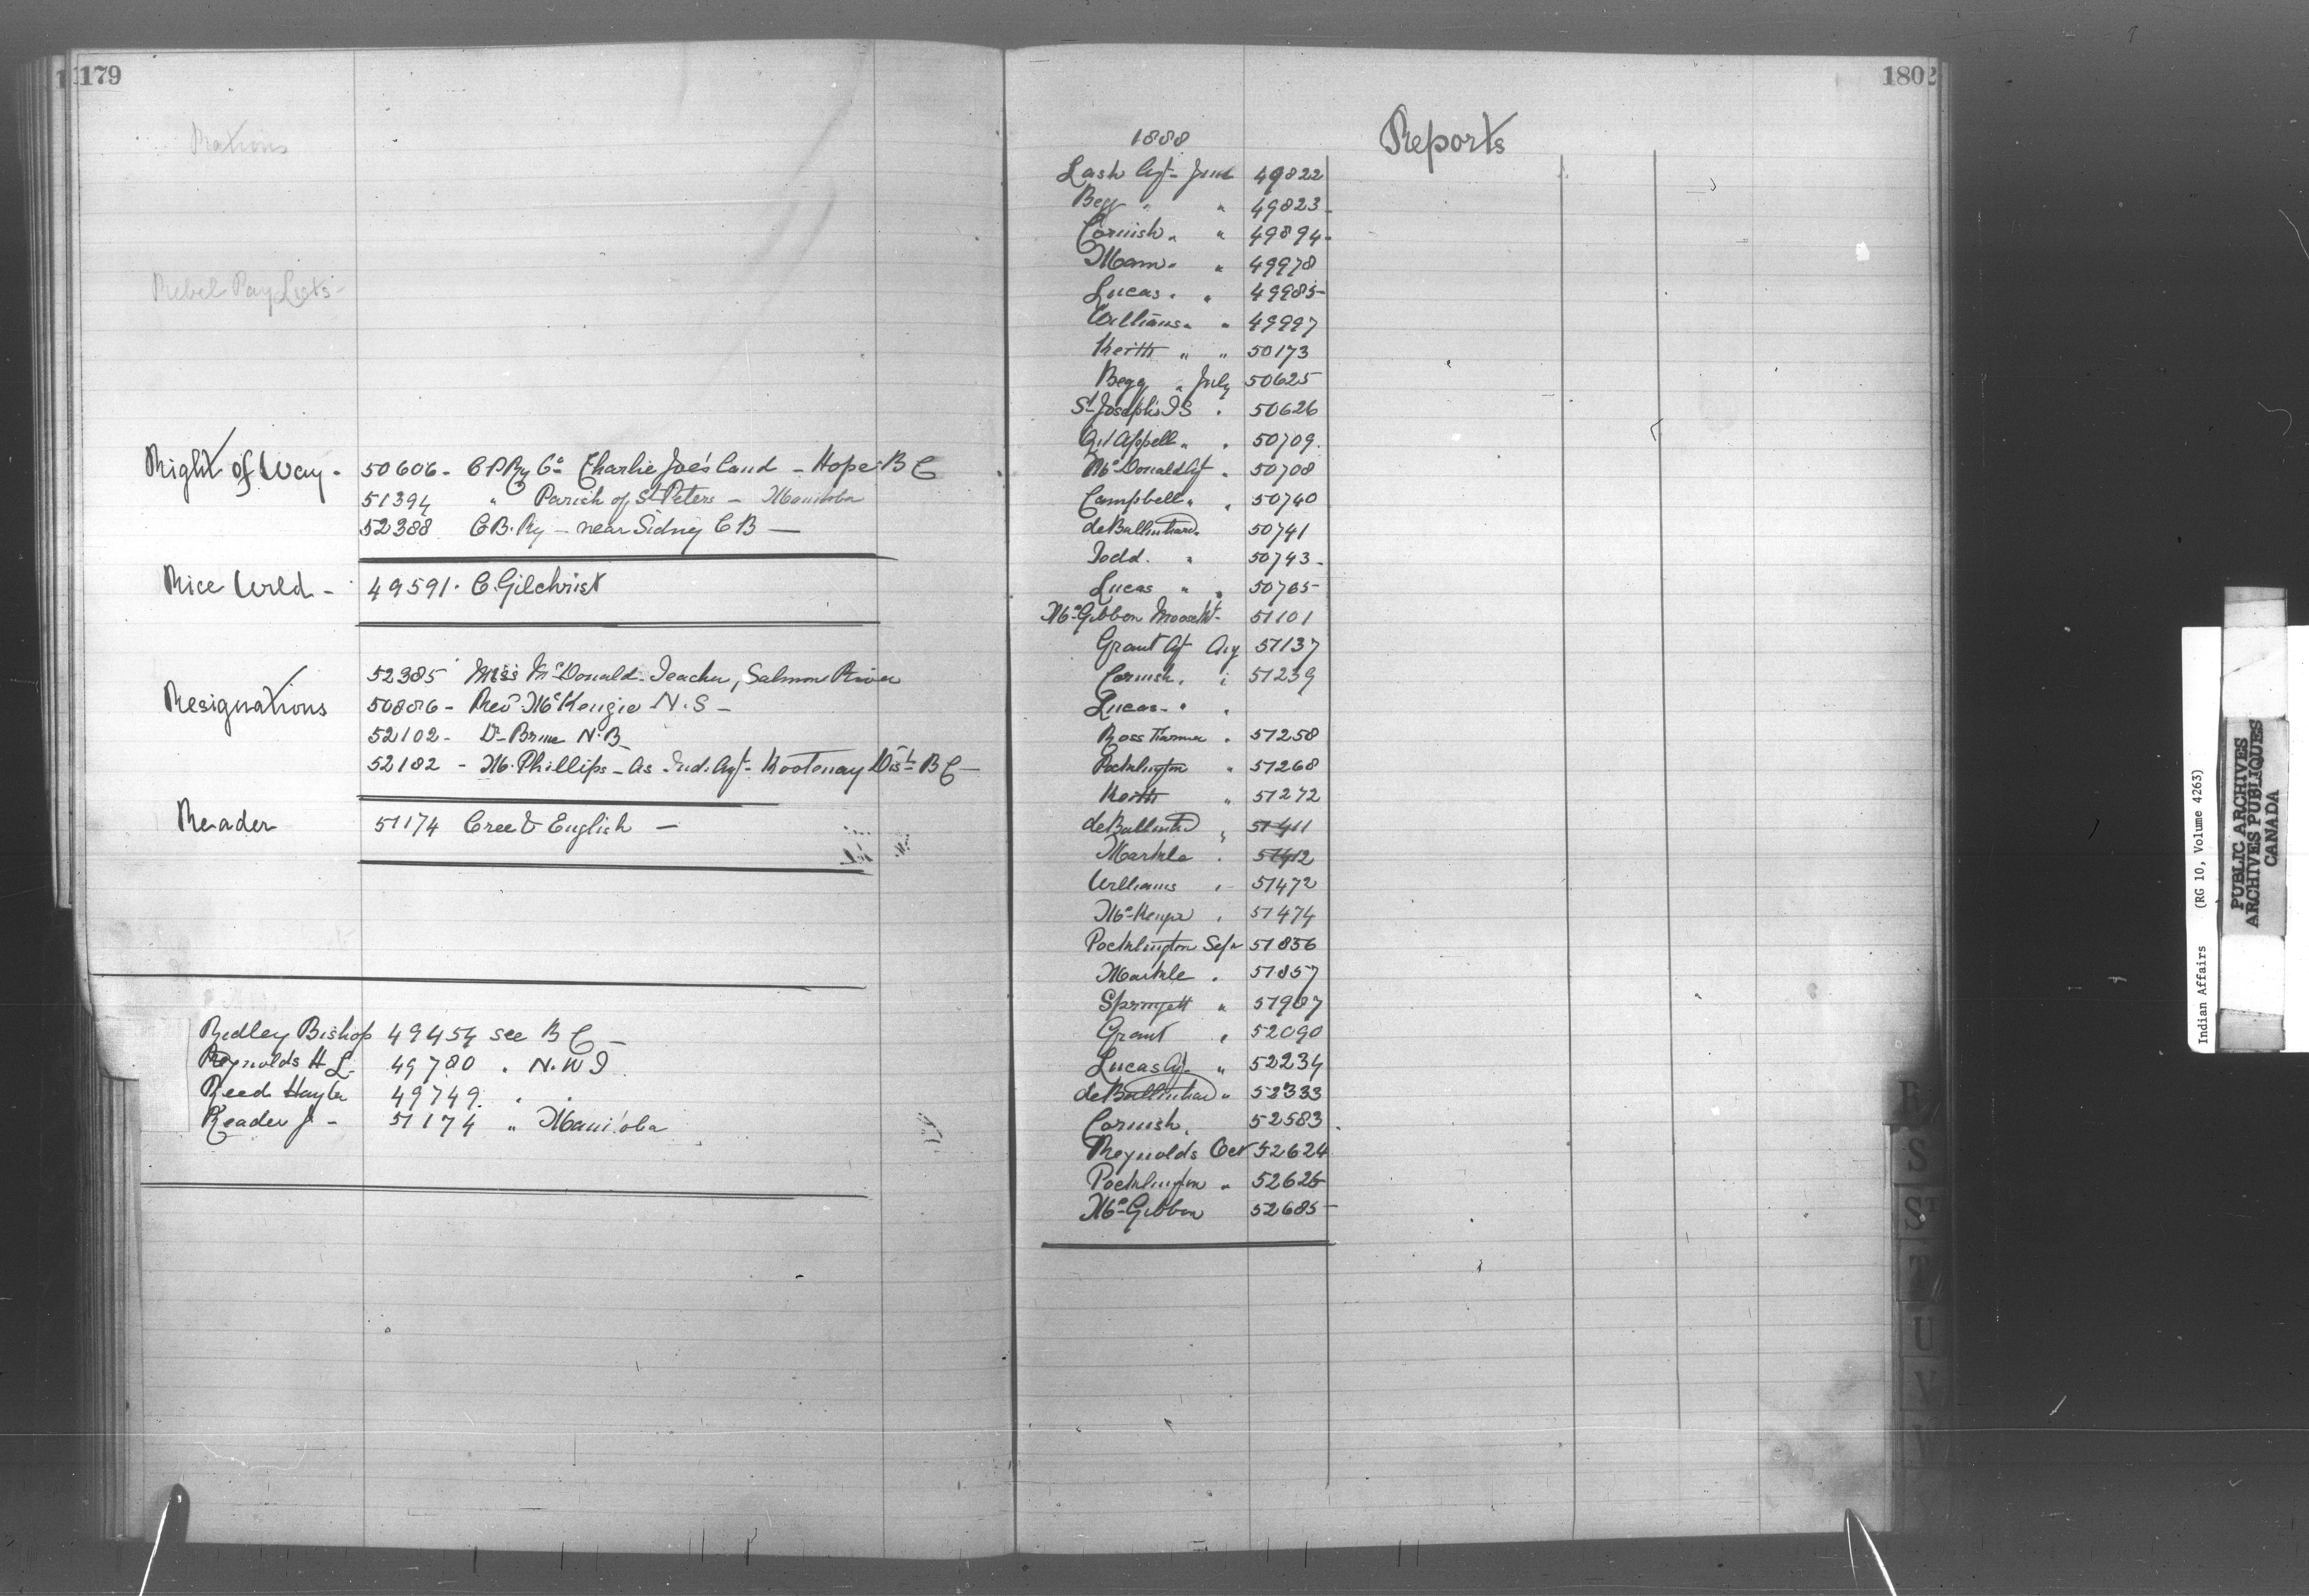 179
Rations
Rebel Pay Lists -
Right of Way - 50606 - C P Ry Co Charlie Joe's land - Hope B C
51394 " Parish of St Peters - Manitoba
52388 C B. Ry - near Sidney C B -
Rice Wild - 49591. C. Gilchrist
52385 Miss McDonald. Teacher, Salmon River
Resignations 50886 - Rev McKenzie N. S -
52102 - Dr N. B
52182 - M. Phillips - As Ind. Agt. Kootenay Dist B C -
Reader 51174 Cree & English -
Ridley Bishop 49454 see B C -
Reynolds H L. 49780 " N. W T
Reed Hayter 49749. " "
Reader J - 51174 " Manitoba
180
1888 Reports
Lash Agt - June 49822
Begg " " 49823 -
Cornish " " 49894 -
Mann " " 49978
Lucas " " 49985 -
Williams " " 49997
Keith " " 50173
Begg " July 50625
St Joseph's I S " 50626
Qu'Appell " " 50709.
McDonald Agt " 50708
Campbell " " 50740
de Balinhard " 50741
Todd. " 50743 -
Lucas " " 50765 -
McGibbon Moose Mt - 51101
Grant Agt Aug 51137
Cornish " " 51239
Lucas - " "
Ross Farmer " 51258
Pocklington " 51268
Keith " 51272
de Balinhd " 51411
Markle " 51412
Williams " 51472
McKenzie " 51474
Pocklington Sepr 51856
Markle " 51857
Springett " 51987
Grant " 52090
Lucas Agt " 52234
de Balinhard " 52333
Cornish " 52583
Reynolds Oct 52624
Pocklington " 52625
McGibbon 52685 -
S
ST
T
U
V
W
Indian Affairs (RG 10, Volume 4263)
PUBLIC ARCHIVES
ARCHIVES PUBLIQUES
CANADA